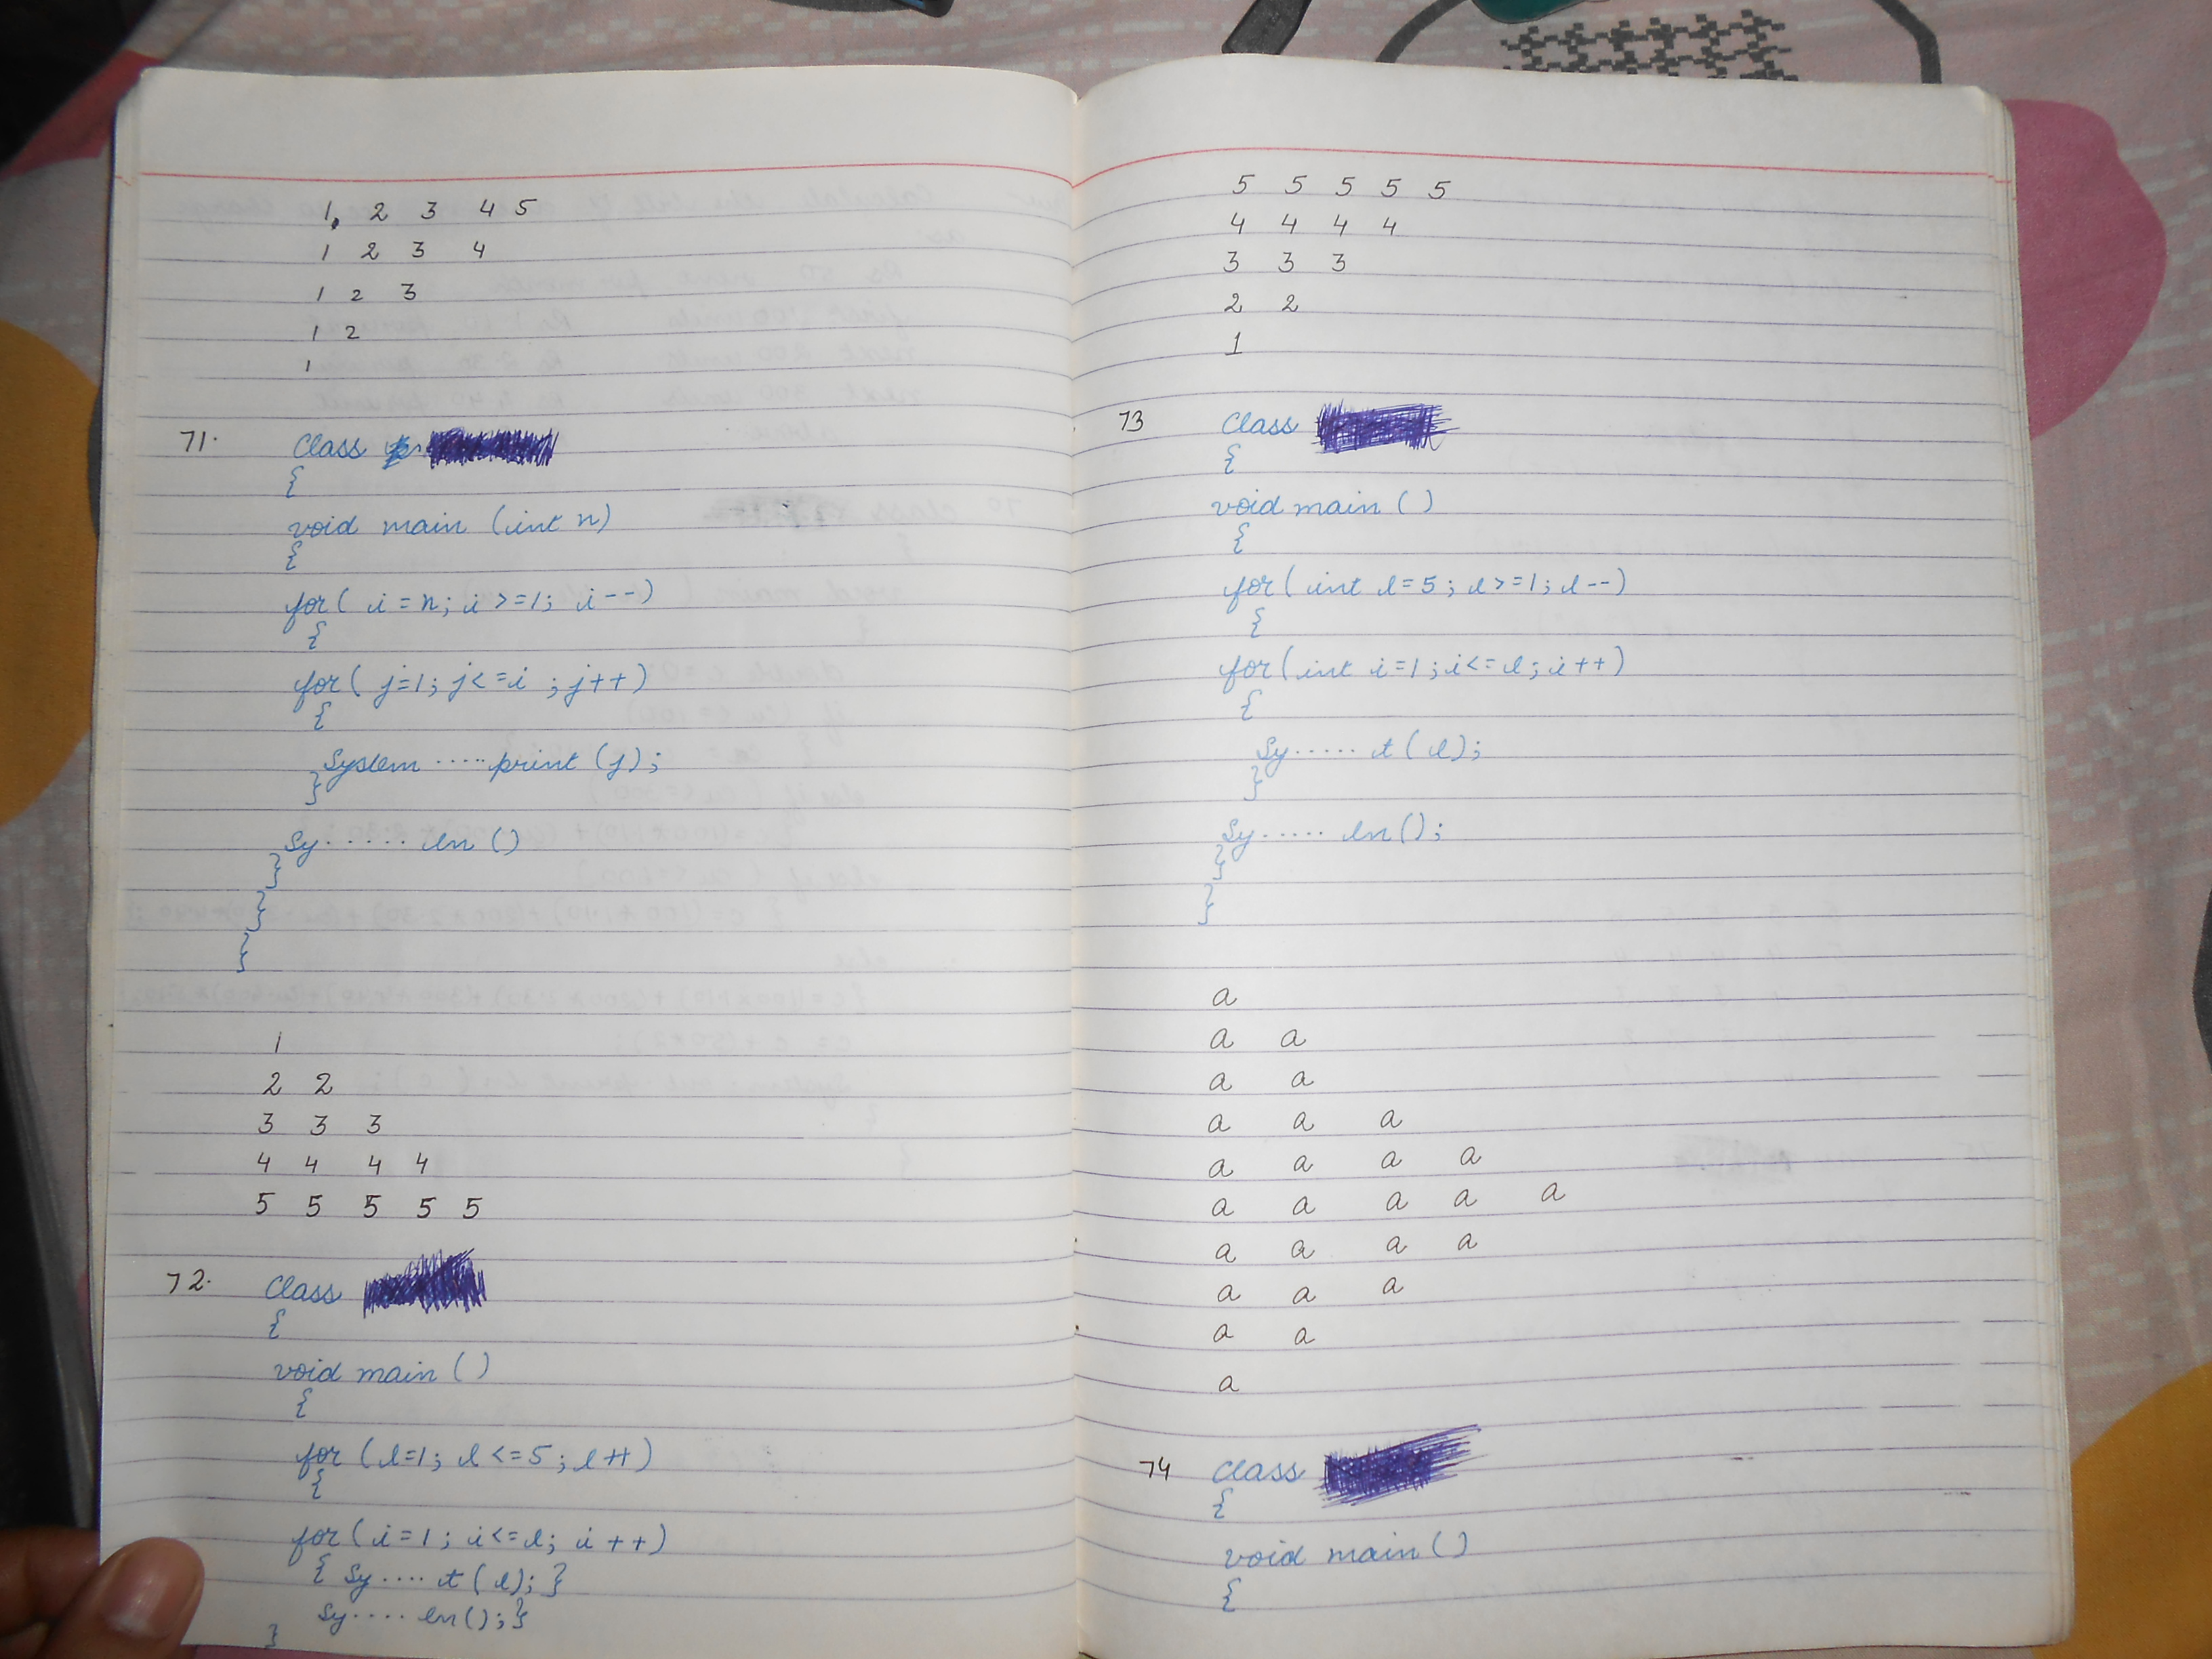 1, 2 3 4 5
1 2 3 4
1 2 3
1 2
1
71. Class
{
void main (int n)
{
for( i = n; i >=1; i--)
{
for( j=1; j<=i ; j++)
{
System ..... print (j);
}
Sy ...... ln ()
}
}
}
1
2 2
3 3 3
4 4 4 4
5 5 5 5 5
72. Class
{
void main ()
{
for (l=1; l <=5 ; l++)
{
for (i=1 ; i<=l; i ++)
{ Sy .... t (l); }
Sy .... ln(); }
}
5 5 5 5 5
4 4 4 4
3 3 3
2 2
1
73 Class
{
void main ()
{
for( int l=5 ; l>=1; l--)
{
for(int i=1 ; i<=l; i++)
{
Sy ..... t (l);
}
Sy ..... ln();
}
}
a
a a
a a
a a a
a a a a
a a a a a
a a a a
a a a
a a
a
74 Class
{
void main ()
{